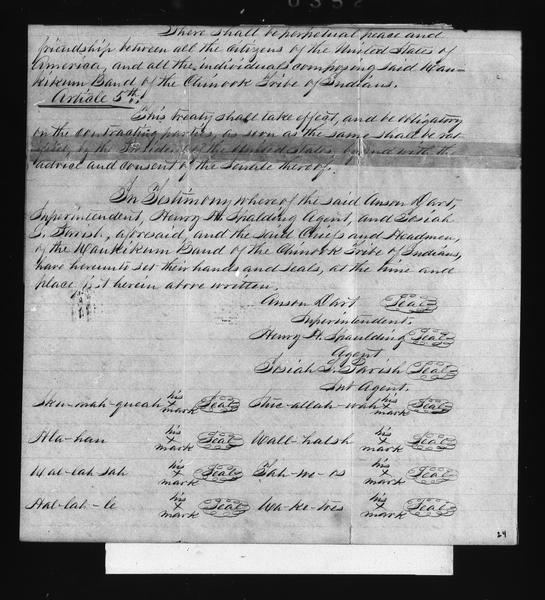 There shall be perpetual peace and
friendship between all the citizens of the United States of
America, and all the individuals composing said Wau-
kikum Band of the Chinook Tribe of Indians.
Article 5th.
This treaty shall take effect, and be obligatory
on the contracting parties, as soon as the same shall be rat-
ified by the President of the United States, by and with the
advice and consent of the Senate thereof.
In Testimony whereof the said Anson Dart,
Superintendent, Henry H. Spalding Agent, and Josiah
L. Parish, aforesaid, and the said Chiefs and Headmen,
of the Waukikum Band of the Chinook Tribe of Indians,
have hereunto set their hands and seals, at the time and
place first herein above written.
Anson Dart Seal
Superintendent.
Henry H. Spaulding Seal
Agent
Josiah L. Parish Seal
Sub Agent.
Sku-mah-queah his x mark Seal
Hla-han his x mark Seal Wall-halsh his x mark Seal
his x mark Seal his x mark Seal
Hal-lah-le his x mark Seal Wa-ke-tes his x mark Seal
24